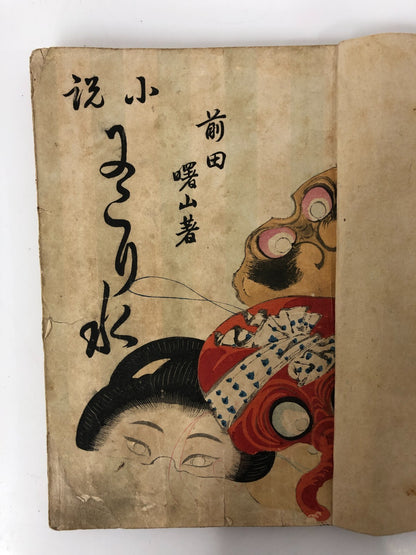 小説
にこり水
前田曙山著